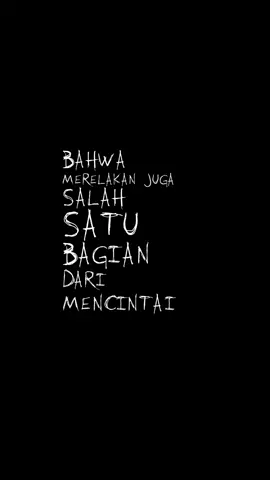 BAHWA
MERELAKAN JUGA
SALAH
SATU
BAGIAN
DARI
MENCINTAI